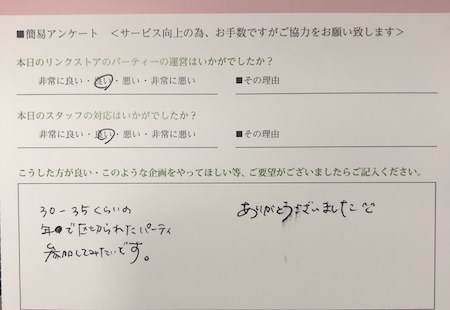 ■簡易アンケート　＜サービス向上の為、お手数ですがご協力をお願い致します＞
本日のリンクストアのパーティーの運営はいかがでしたか？
非常に良い・良い・悪い・非常に悪い　■その理由
本日のスタッフの対応はいかがでしたか？
非常に良い・良い・悪い・非常に悪い　■その理由
こうした方が良い・このような企画をやってほしい等、ご要望がございましたらご記入ください。
30-35くらいの
年で区切られたパーティ
参加してみたいです。
ありがとうございました